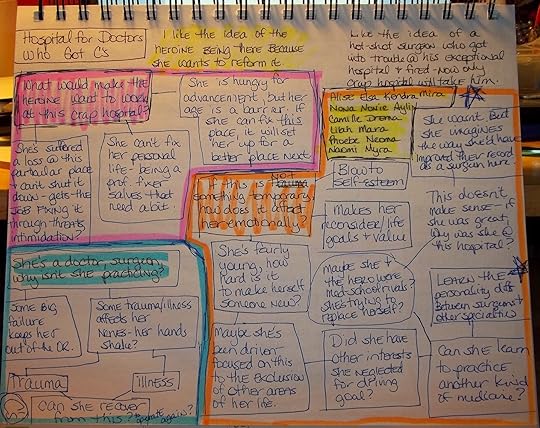 Hospital for Doctors
Who Got C's
I like the idea of the
heroine being there because
she wants to reform it.
Like the idea of a
hot-shot surgeon who got
into trouble @ his exceptional
hospital & fired - now only
crap hospital will take him.
What would make the
heroine want to work
at this crap hospital?
She is hungry for
advancement, but her
age is a barrier. If
she can fix this
place, it will set
her up for a
better place next
She's suffered
a loss @ this
particular place
& can't shut it
down - gets the
job fixing it
through threats
intimidation?
She can't fix
her personal
life - being a
prof. fixer
salves that
need a bit.
Alise Elsa Kendra Mira
Nova Noirie Aylin
Camille Drema
Lilah Maira
Phoebe Neoma
Naomi Myra
She wasn't. But she
imagines
the way she'd have
improved their record
as a surgeon here
If this is NOT trauma
something temporary,
how does it affect
her emotionally?
Blow to
Self-esteem
Makes her
reconsider life
goals & value
This doesn't
make sense - if
she was great,
why was she @
this hospital?
She's a doctor, surgeon,
why isn't she practicing?
She's fairly
young, how
hard is it
to make herself
someone new?
Maybe she &
the hero were
med-school rivals?
she's trying to
replace herself?
Learn the
personality diff
between surgeons &
other specialties
Some BIG
failure
keeps her
out of the OR.
Some trauma/illness
affects her
nerves - her hands
shake?
Maybe she's
been driven
focused on this
to the exclusion
of other areas
of her life.
Did she have
other interests
she neglected
for driving
goal?
Can she learn
to practice
another kind
of medicine?
Trauma
illness
Can she recover
from this? *operate again?*